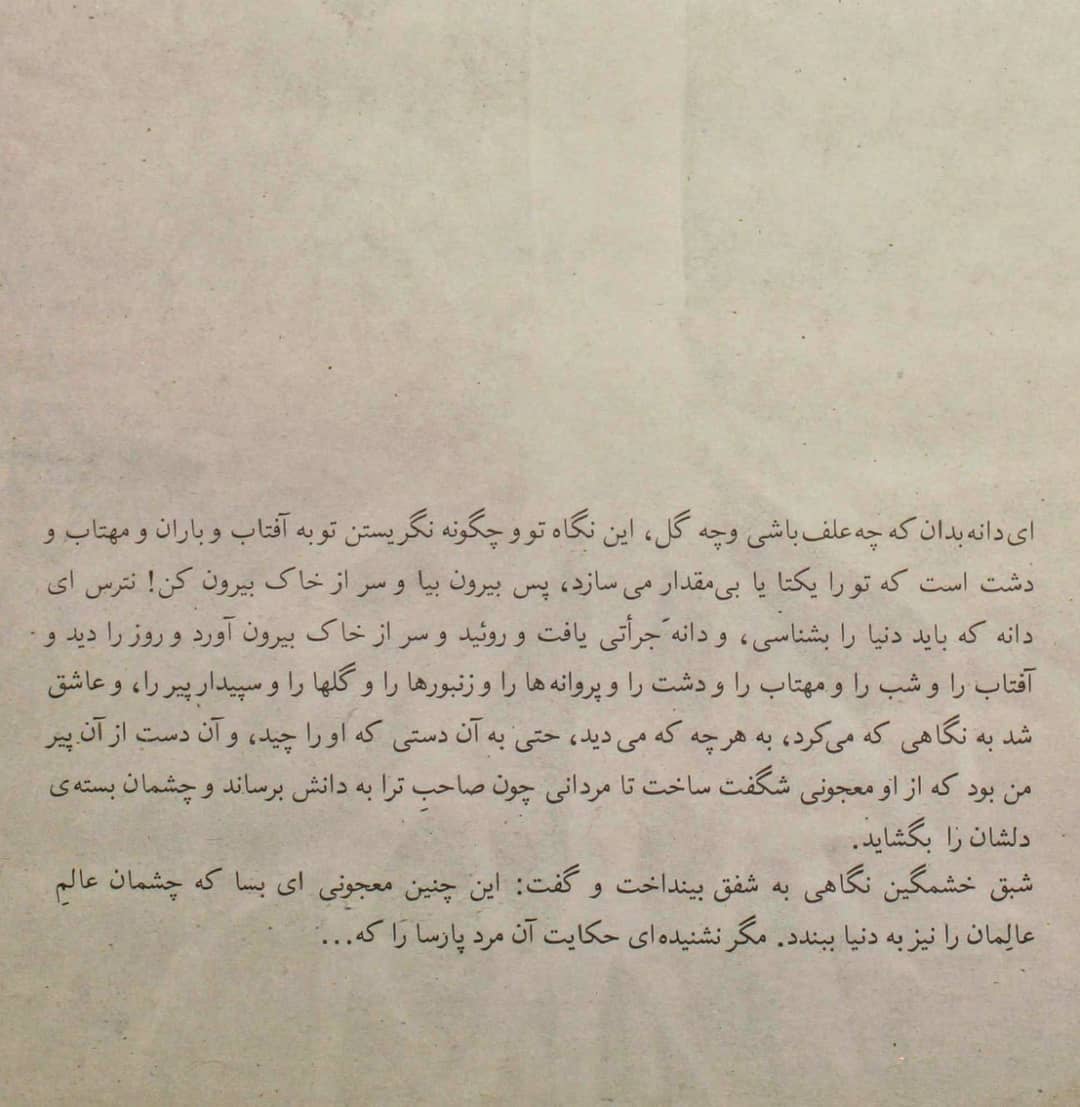 ای دانه بدان که چه علف باشی وچه گل، این نگاه تو و چگونه نگریستن تو به آفتاب و باران و مهتاب و
دشت است که تو را یکتا یا بی‌مقدار می‌سازد، پس بیرون بیا و سر از خاک بیرون کن! نترس ای
دانه که باید دنیا را بشناسی، و دانه جرأتی یافت و روئید و سر از خاک بیرون آورد و روز را دید و
آفتاب را و شب را و مهتاب را و دشت را و پروانه‌ها را و زنبورها را و گلها را و سپیدار پیر را، و عاشق
شد به نگاهی که می‌کرد، به هر چه که می‌دید، حتی به آن دستی که او را چید، و آن دست از آن پیر
من بود که از او معجونی شگفت ساخت تا مردانی چون صاحبِ ترا به دانش برساند و چشمان بسته‌ی
دلشان را بگشاید.
شبق خشمگین نگاهی به شفق بینداخت و گفت: این چنین معجونی ای بسا که چشمان عالمِ
عالِمان را نیز به دنیا ببندد. مگر نشنیده‌ای حکایت آن مرد پارسا را که...